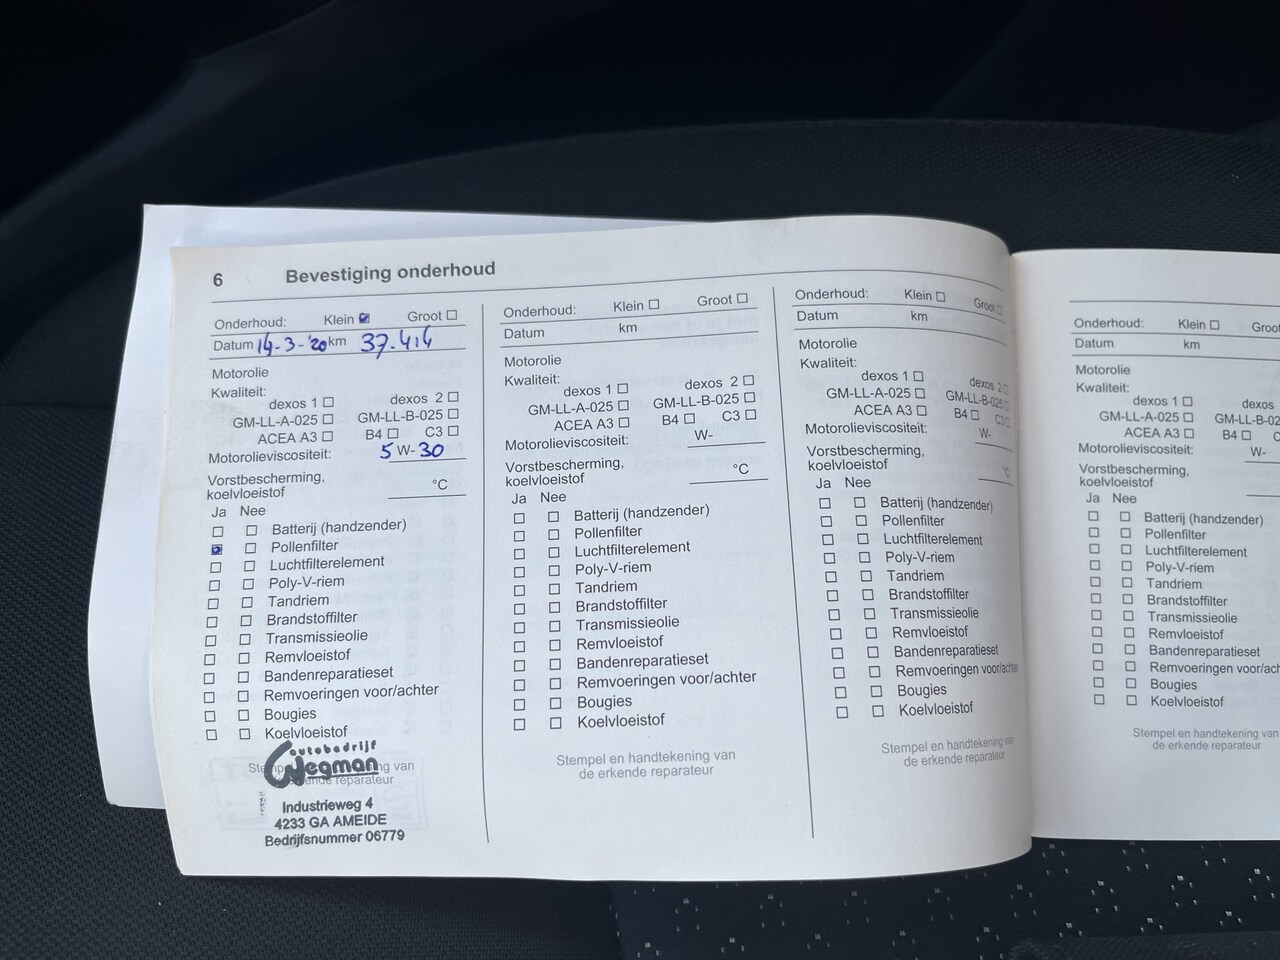 6 Bevestiging onderhoud
Onderhoud: Klein Groot
Datum 14-3-'20 km 37.414
Motorolie
Kwaliteit:
dexos 1 dexos 2
GM-LL-A-025 GM-LL-B-025
ACEA A3 B4 C3
Motorolieviscositeit: 5 W- 30
Vorstbescherming,
koelvloeistof °C
Ja Nee
Batterij (handzender)
Pollenfilter
Luchtfilterelement
Poly-V-riem
Tandriem
Brandstoffilter
Transmissieolie
Remvloeistof
Bandenreparatieset
Remvoeringen voor/achter
Bougies
Koelvloeistof
autobedrijf
Wegman
Industrieweg 4
4233 GA AMEIDE
Bedrijfsnummer 06779
Onderhoud: Klein Groot
Datum km
Motorolie
Kwaliteit:
dexos 1 dexos 2
GM-LL-A-025 GM-LL-B-025
ACEA A3 B4 C3
Motorolieviscositeit: W-
Vorstbescherming,
koelvloeistof °C
Ja Nee
Batterij (handzender)
Pollenfilter
Luchtfilterelement
Poly-V-riem
Tandriem
Brandstoffilter
Transmissieolie
Remvloeistof
Bandenreparatieset
Remvoeringen voor/achter
Bougies
Koelvloeistof
Stempel en handtekening van
de erkende reparateur
Onderhoud: Klein Groot
Datum km
Motorolie
Kwaliteit:
dexos 1 dexos 2
GM-LL-A-025 GM-LL-B-025
ACEA A3 B4 C3
Motorolieviscositeit: W-
Vorstbescherming,
koelvloeistof °C
Ja Nee
Batterij (handzender)
Pollenfilter
Luchtfilterelement
Poly-V-riem
Tandriem
Brandstoffilter
Transmissieolie
Remvloeistof
Bandenreparatieset
Remvoeringen voor/achter
Bougies
Koelvloeistof
Stempel en handtekening van
de erkende reparateur
Onderhoud: Klein Groot
Datum km
Motorolie
Kwaliteit:
dexos 1 dexos
GM-LL-A-025 GM-LL-B-02
ACEA A3 B4 C
Motorolieviscositeit: W-
Vorstbescherming,
koelvloeistof
Ja Nee
Batterij (handzender)
Pollenfilter
Luchtfilterelement
Poly-V-riem
Tandriem
Brandstoffilter
Transmissieolie
Remvloeistof
Bandenreparatieset
Remvoeringen voor/ach
Bougies
Koelvloeistof
Stempel en handtekening van
de erkende reparateur